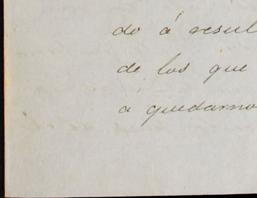 do á resul
de los que
á quedarno